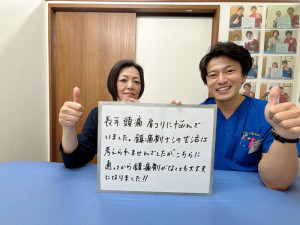 長年頭痛 肩コリに悩んで
いました。鎮痛剤ナシの生活は
考えられませんでしたがこちらに
通ってから鎮痛剤がなくても大丈夫
になりました!!